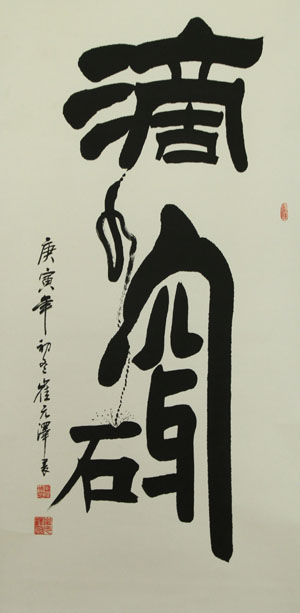 滴水穿石
庚寅年初冬崔元澤